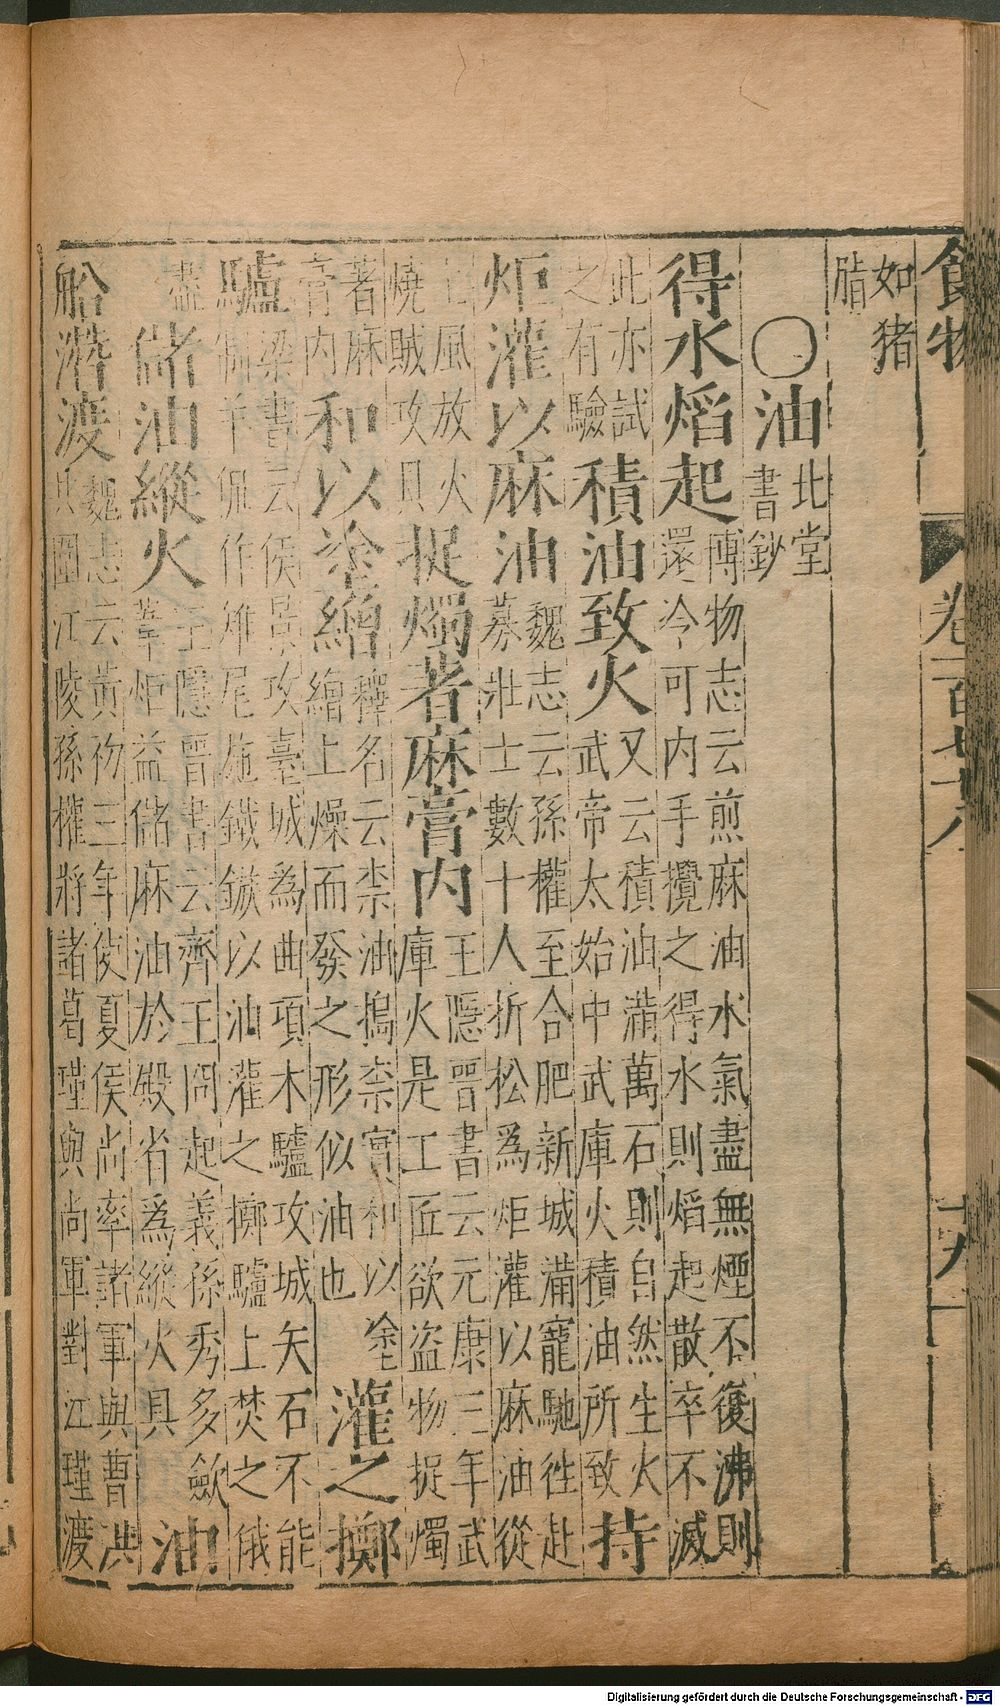 食物 卷一百七十八 十九
如猪
脂
○油 北堂
書鈔
得水熖起 博物志云煎麻油水氣盡無煙不復沸則
還今可内手攪之得水則熖起散卒不滅
此亦試
之有驗
積油致火 又云積油滿萬石則自然生火
武帝太始中武庫火積油所致
持
炬灌以麻油 魏志云孫權至合肥新城滿寵馳徃赴
募壯士數十人折松爲炬灌以麻油從
上風放火
燒賊攻具
捉燭者麻膏内 王隱晉書云元康三年武
庫火是工匠欲盗物捉燭
著麻
膏内
和以塗繒 釋名云柰油搗柰實和以塗
繒上燥而發之形似油也
灌之擲
驢 梁書云侯景攻臺城為曲項木驢攻城矢石不能
制羊侃作雉尾施鐵鏃以油灌之擲驢上焚之俄
盡
儲油縱火 王隱晉書云齊王冏起義孫秀多歛
葦炬益儲麻油於殿省爲縱火具
油
船濳渡 魏志云黃初三年使夏侯尚率諸軍與曹洪
共圍江陵孫權將諸葛瑾與尚軍對江瑾渡
Digitalisierung gefördert durch die Deutsche Forschungsgemeinschaft - DFG